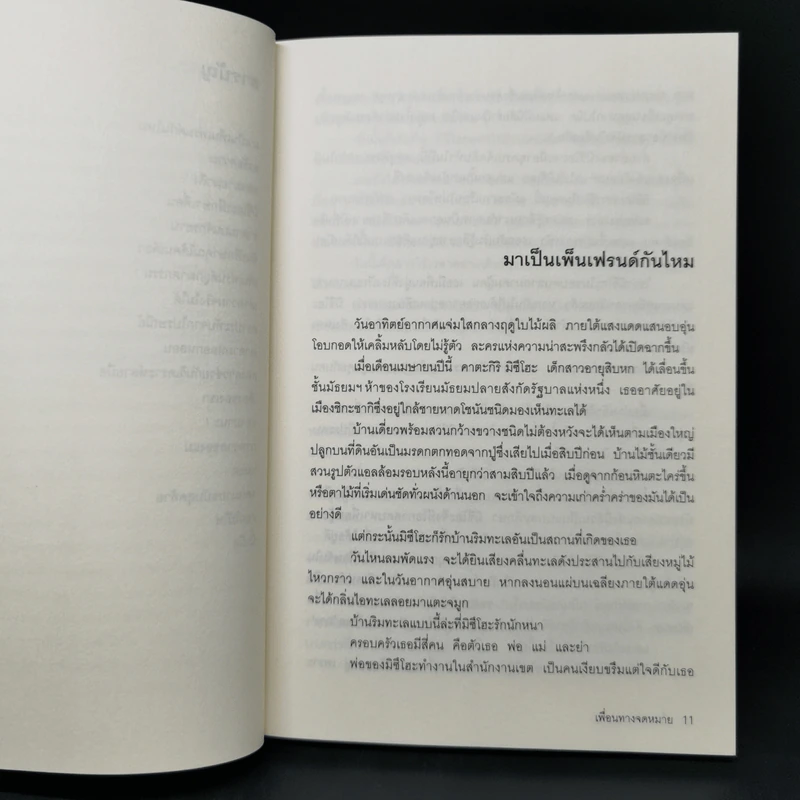 มาเป็นเพ็นเฟรนด์กันไหม
วันอาทิตย์อากาศแจ่มใสกลางฤดูใบไม้ผลิ ภายใต้แสงแดดแสนอบอุ่น
โอบกอดให้เคลิ้มหลับโดยไม่รู้ตัว ละครแห่งความน่าสะพรึงกลัวได้เปิดฉากขึ้น
เมื่อเดือนเมษายนปีนี้ คาตะกิริ มิซึโฮะ เด็กสาวอายุสิบหก ได้เลื่อนขึ้น
ชั้นมัธยมฯ ห้าของโรงเรียนมัธยมปลายสังกัดรัฐบาลแห่งหนึ่ง เธออาศัยอยู่ใน
เมืองชิกะซากิซึ่งอยู่ใกล้ชายหาดโชนันชนิดมองเห็นทะเลได้
บ้านเดี่ยวพร้อมสวนกว้างขวางชนิดไม่ต้องหวังจะได้เห็นตามเมืองใหญ่
ปลูกบนที่ดินอันเป็นมรดกตกทอดจากปู่ซึ่งเสียไปเมื่อสิบปีก่อน บ้านไม้ชั้นเดียวมี
สวนรูปตัวแอลล้อมรอบหลังนี้อายุกว่าสามสิบปีแล้ว เมื่อดูจากก้อนหินตะไคร่ขึ้น
หรือตาไม้ที่เริ่มเด่นชัดทั่วผนังด้านนอก จะเข้าใจถึงความเก่าคร่ำคร่าของมันได้เป็น
อย่างดี
แต่กระนั้นมิซึโฮะก็รักบ้านริมทะเลอันเป็นสถานที่เกิดของเธอ
วันไหนลมพัดแรง จะได้ยินเสียงคลื่นทะเลดังประสานไปกับเสียงหมู่ไม้
ไหวกราว และในวันอากาศอุ่นสบาย หากลงนอนแผ่บนเฉลียงภายใต้แดดอุ่น
จะได้กลิ่นไอทะเลลอยมาแตะจมูก
บ้านริมทะเลแบบนี้ล่ะที่มิซึโฮะรักนักหนา
ครอบครัวเธอมีสี่คน คือตัวเธอ พ่อ แม่ และย่า
พ่อของมิซึโฮะทำงานในสำนักงานเขต เป็นคนเงียบขรึมแต่ใจดีกับเธอ
เพื่อนทางจดหมาย 11